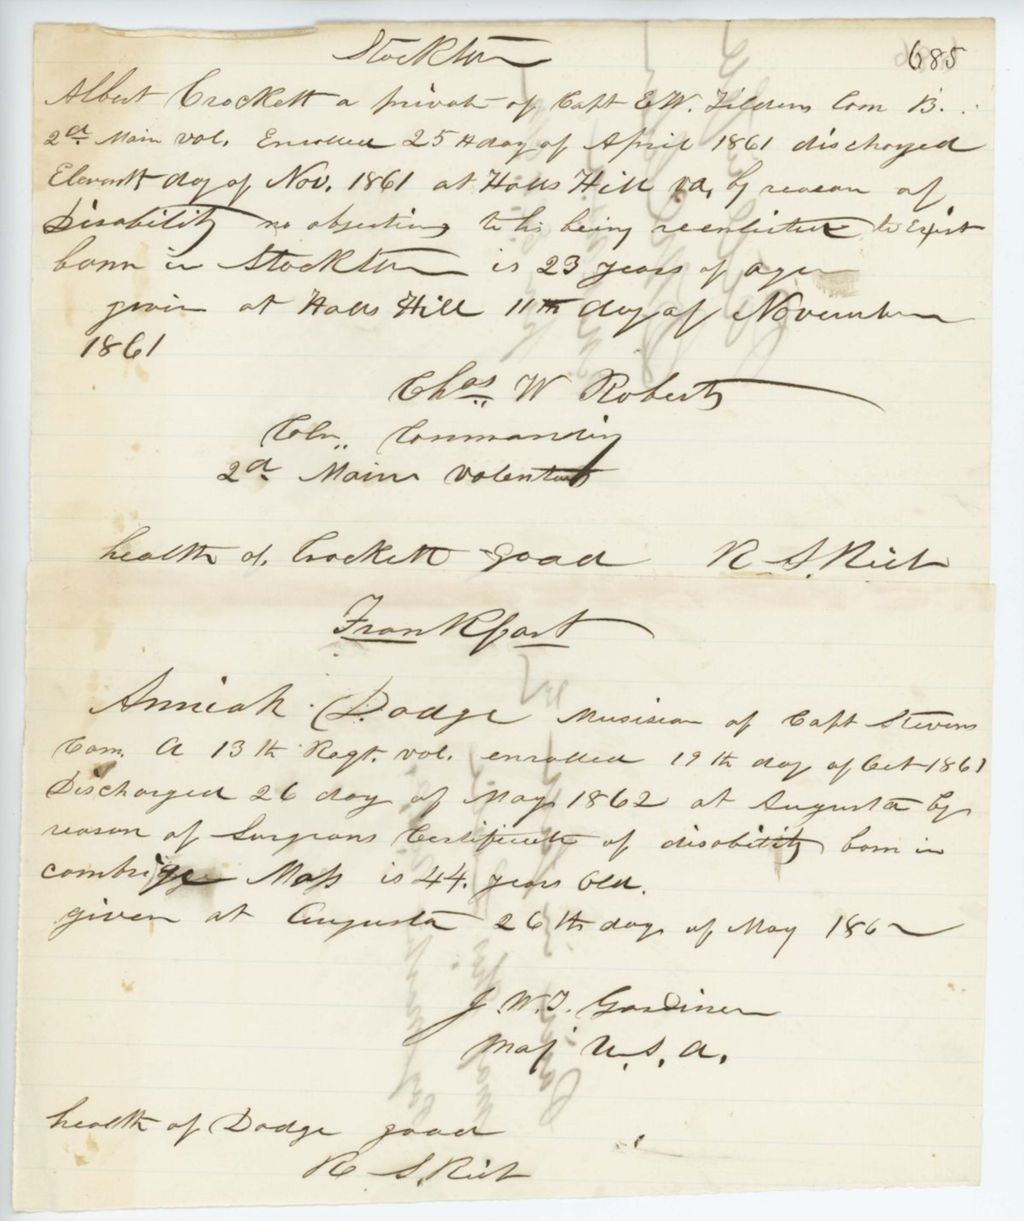 685
Stockton
Albert Crockett a private of Capt E W. Tildens Com B.
2d Main vol. Enrolled 25th day of April 1861 discharged
Eleventh day of Nov. 1861 at Halls Hill va, by reason of
Disability no objections to his being reenlisted to Exist
born in Stockton is 23 years of age
given at Halls Hill 11th day of November
1861
Chas W Roberts
Coln. Commanding
2d Maine
health of Crockett good R S. Rich
Frankfort
Dodge Musisian of Capt Stevens
Com. A 13th Regt. vol. enrolled 19th day of Oct 1861
Discharged 26 day of May 1862 at Augusta by
reason of Surgeons Certificate of disability born in
Mass is 44. years old.
given at Augusta 26th day of May 1862
J. W. T. Gardiner
Maj U. S. A.
health of Dodge good
R S. Rich